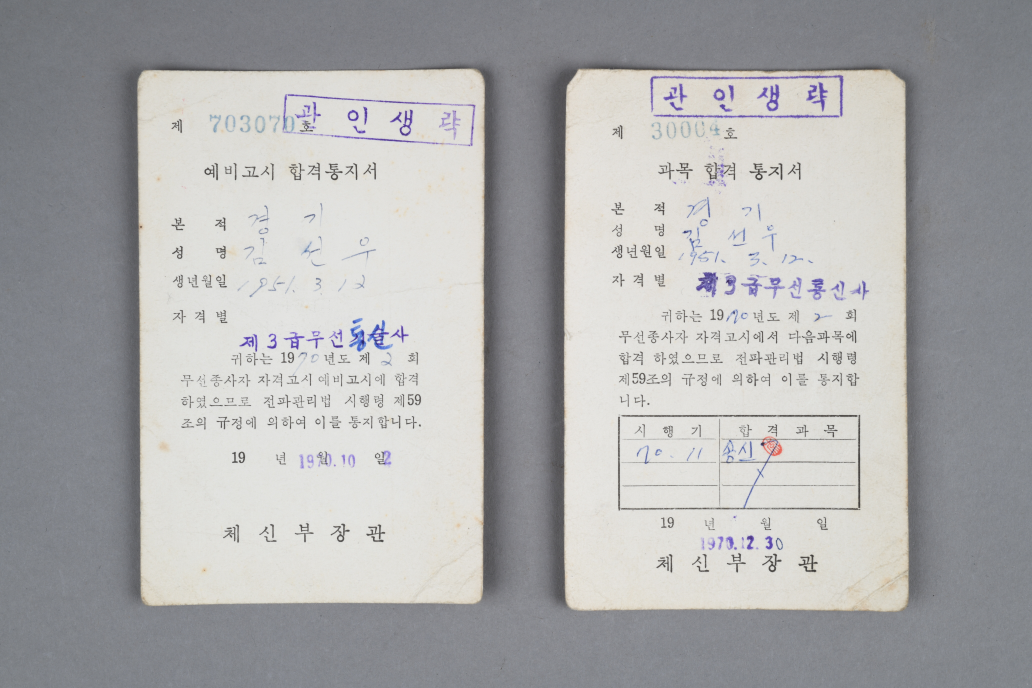 관인생략
제 703070 호
예비고시 합격통지서
본 적 경 기
성 명 김 선 우
생년월일 1951. 3. 12
자격별
제3급무선통신사
귀하는 1970년도 제 2 회
무선종사자 자격고시 예비고시에 합격
하였으므로 전파관리법 시행령 제59
조의 규정에 의하여 이를 통지합니다.
19 년 월 일
1970.10 2
체신부장관
관인생략
제 30004 호
과목 합격 통지서
본 적 경 기
성 명 김 선 우
생년월일 1951. 3. 12.
자격별 제3급무선통신사
귀하는 1970년도 제 2 회
무선종사자 자격고시에서 다음과목에
합격 하였으므로 전파관리법 시행령
제59조의 규정에 의하여 이를 통지합
니다.
시행기 합격과목
70. 11 송신
19 년 월 일
1970.12.30
체신부장관